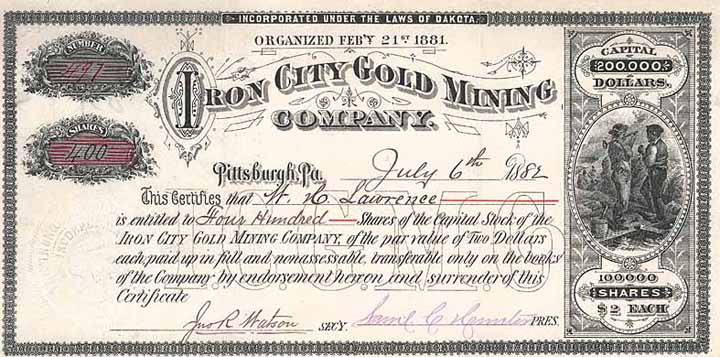 INCORPORATED UNDER THE LAWS OF DAKOTA.
ORGANIZED FEB'Y 21ST 1881.
NUMBER
497
SHARES
400
IRON CITY GOLD MINING
COMPANY.
CAPITAL
200,000
DOLLARS.
Pittsburgh, Pa. July 6th 1882
This Certifies that W. C. Lawrence
is entitled to Four Hundred Shares of the Capital Stock of the
IRON CITY GOLD MINING COMPANY, of the par value of Two Dollars
each, paid up in full and nonassessable, transferable only on the books
of the Company by endorsement hereon and surrender of this
Certificate
Jno R. Watson SECY. Saml C PRES.
100,000
SHARES
$2 EACH